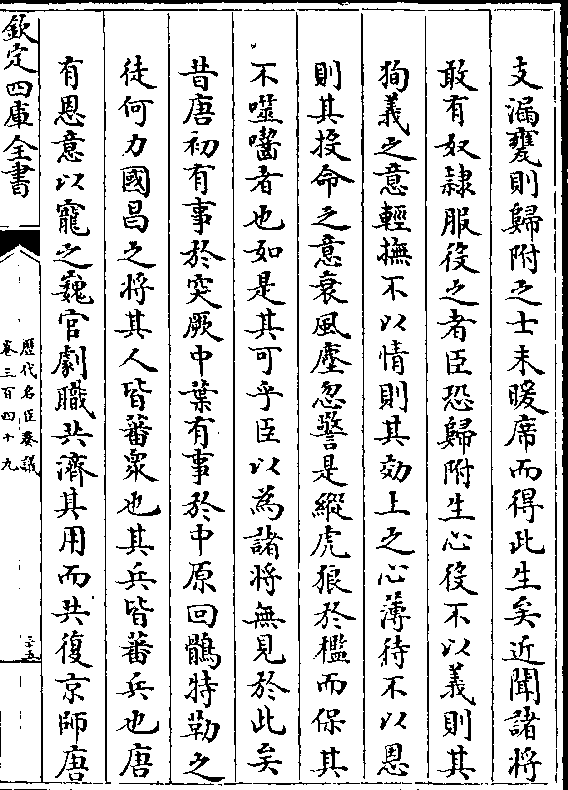 支漏甕則歸附之士未暖席而得此生矣近聞諸將
敢有奴隷服役之者臣恐歸附生心役不以義則其
狥義之意輕撫不以情則其効上之心薄待不以恩
則其投命之意衰風塵忽警是縱虎狼於檻而保其
不噬嚙者也如是其可乎臣以為諸將無見於此矣
昔唐初有事於突厥中葉有事於中原回鶻特勒之
徒何力國昌之將其人皆蕃衆也其兵皆蕃兵也唐
有恩意以寵之巍官劇職共濟其用而共復京師唐
欽定四庫全書
歷代名臣奏議
卷三百四十九
三五